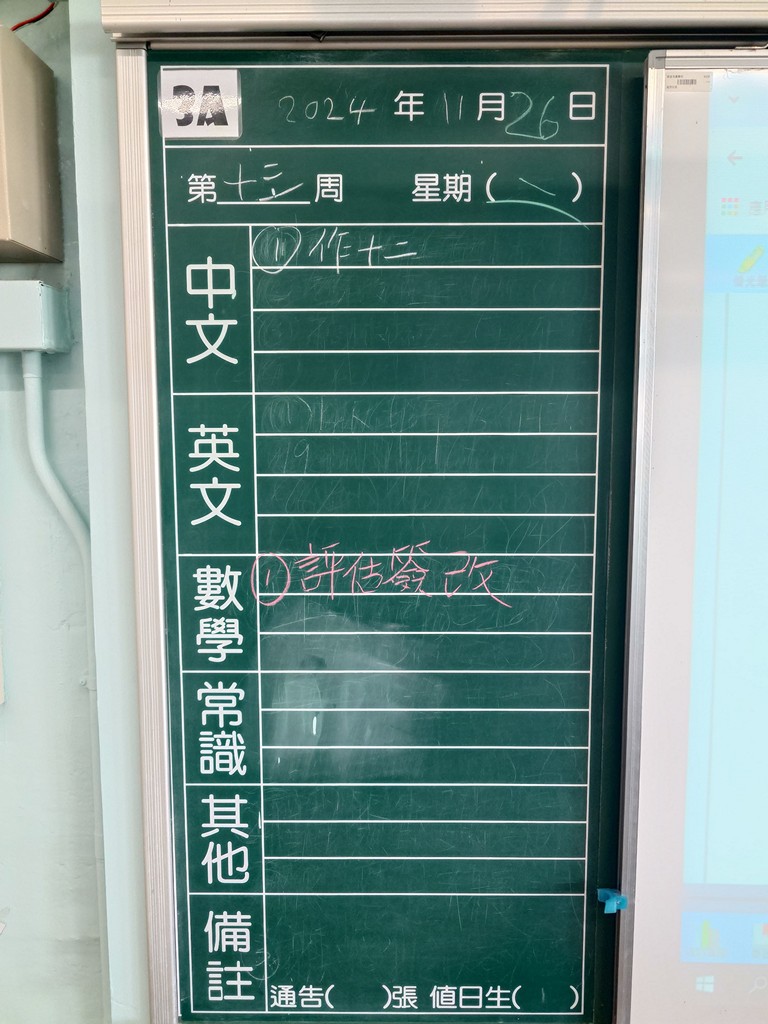 3A 2024年11月26日
第十三周 星期( )
中文 ① 作十二
英文
數學 ① 評估簽改
常識
其他
備註
通告( )張 值日生( )